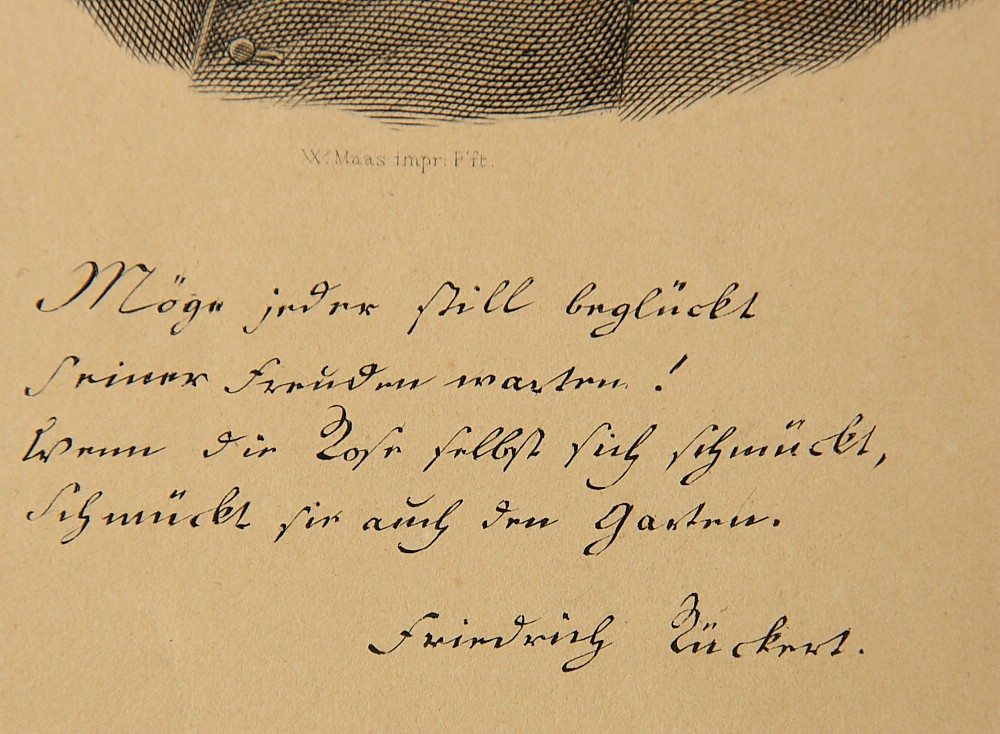 W. Maas impr: Fft.
Möge jeder still beglückt
Seiner Freuden warten!
Wenn die Rose selbst sich schmückt,
Schmückt sie auch den Garten.
Friedrich Rückert.